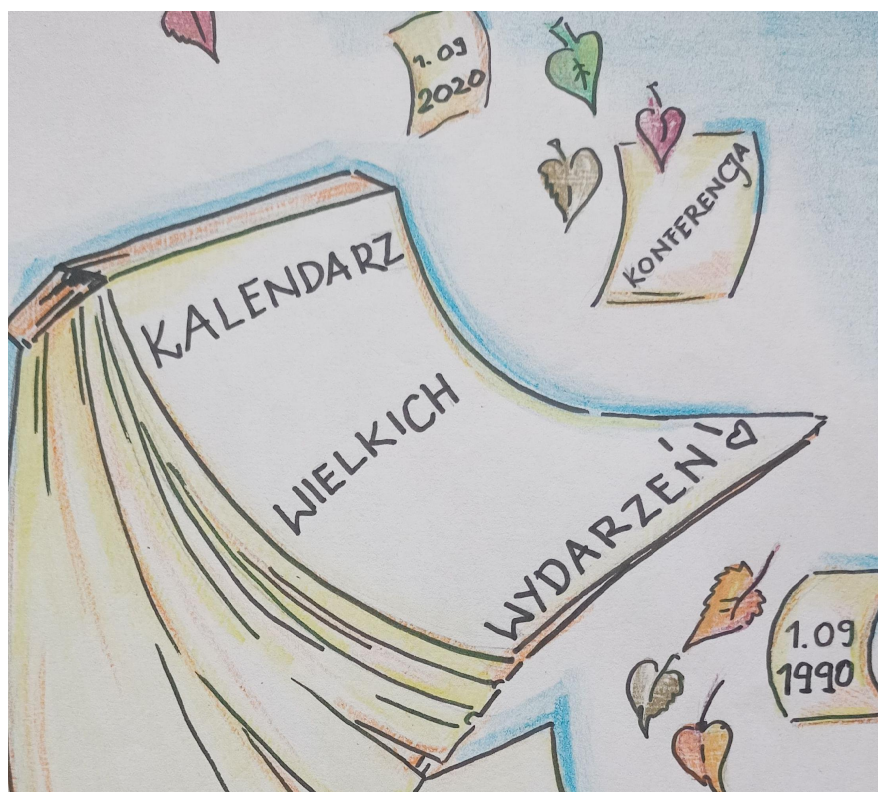 1.09
2020
KONFERENCJA
KALENDARZ
WIELKICH
WYDARZEŃ!
1.09
1990